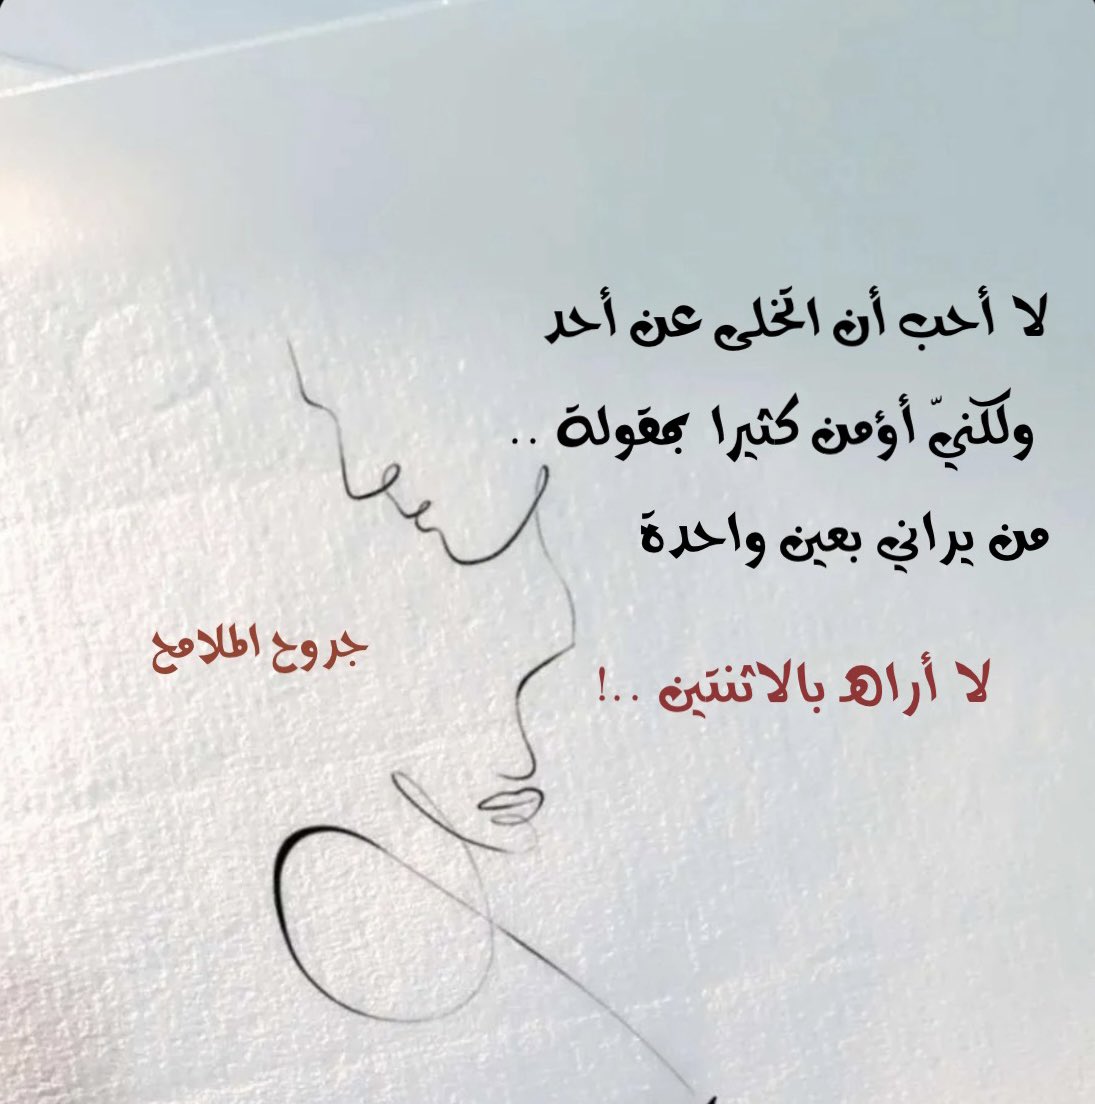 لا أحب أن اتخلى عن أحد
ولكنيّ أؤمن كثيرا بمقولة ..
من يراني بعين واحدة
لا أراه بالاثنتين ..!
جروح الملامح